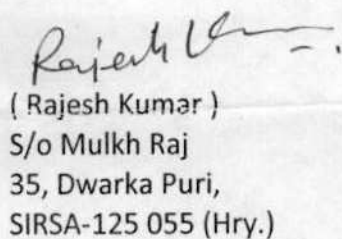 Rajesh Kumar
( Rajesh Kumar )
S/o Mulkh Raj
35, Dwarka Puri,
SIRSA-125 055 (Hry.)